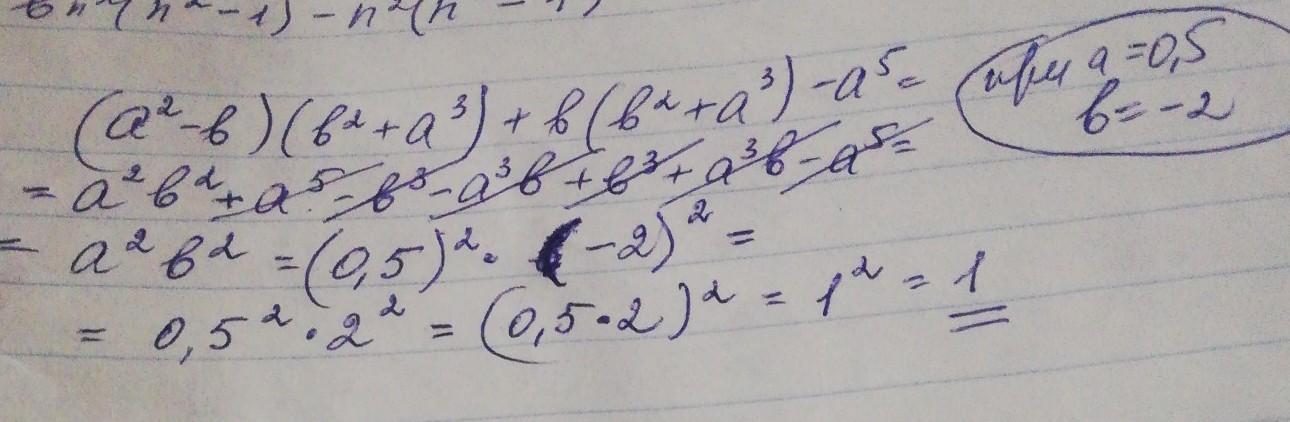 (a²-b)(b²+a³)+b(b²+a³)-a⁵= при a=0,5
b=-2
=a²b²+a⁵-b³-a³b+b³+a³b-a⁵=
=a²b²=(0,5)²·(-2)²=
=0,5²·2²=(0,5·2)²=1²=1